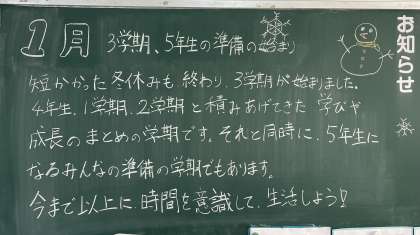 お知らせ
1月 3学期、5年生の準備の始まり
短かかった冬休みも終わり、3学期が始まりました。
4年生、1学期、2学期と積みあげてきた学びや
成長のまとめの学期です。それと同時に、5年生に
なるみんなの準備の学期でもあります。
今まで以上に、時間を意識して、生活しよう!